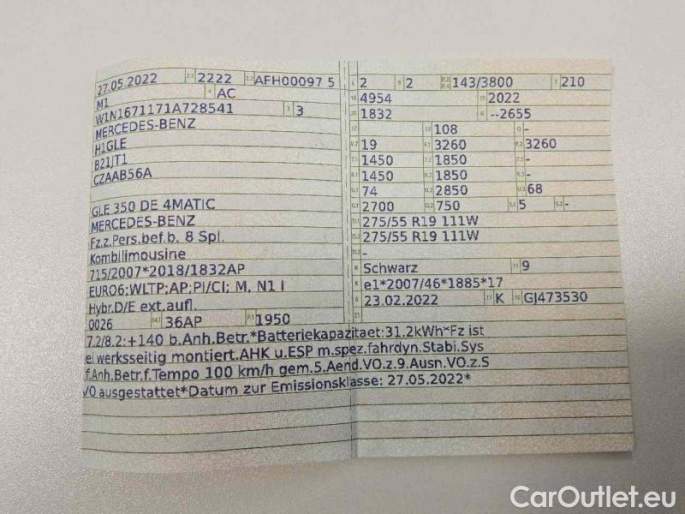 27.05.2022 2222 AFH00097 5
M1 AC
W1N1671171A728541 3
MERCEDES-BENZ
H1GLE
B21JT1
CZAAB56A
GLE 350 DE 4MATIC
MERCEDES-BENZ
Fz.z.Pers.bef.b. 8 Spl.
Kombilimousine
715/2007*2018/1832AP
EURO6;WLTP;AP;PI/CI; M, N1 I
Hybr.D/E ext.aufl.
0026 36AP 1950
2 2 143/3800 210
4954 2022
1832 --2655
108 -
19 3260 3260
1450 1850 -
1450 1850 -
74 2850 68
2700 750 5 -
275/55 R19 111W
275/55 R19 111W
-
Schwarz 9
e1*2007/46*1885*17
23.02.2022 K GJ473530
7.2/8.2:+140 b.Anh.Betr.*Batteriekapazitaet:31,2kWh*Fz ist
ei werksseitig montiert.AHK u.ESP m.spez.fahrdyn.Stabi.Sys
f.Anh.Betr.f.Tempo 100 km/h gem.5.Aend.VO.z.9.Ausn.VO.z.S
VO ausgestattet*Datum zur Emissionsklasse: 27.05.2022*
CarOutlet.eu